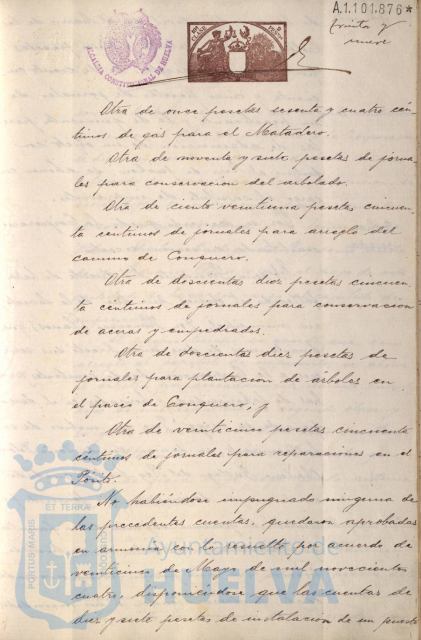 A.1.101.876*
treinta y
nueve
ALCALDIA CONSTITUCIONAL DE HUELVA
Otra de once pesetas sesenta y cuatro cén-
timos de gas para el Matadero.
Otra de noventa y siete pesetas de jorna-
les para conservacion del arbolado.
Otra de ciento veintiuna pesetas cincuen-
ta centimos de jornales para arreglo del
camino de Conquero.
Otra de doscientas diez pesetas cincuen-
ta céntimos de jornales para conservacion
de aceras y empedrados.
Otra de doscientas diez pesetas de
jornales para plantacion de árboles en
el paseo de Conquero, y
Otra de veinticinco pesetas cincuenta
céntimos de jornales para reparaciones en el
No habiéndose impugnado ninguna de
las precedentes cuentas, quedaron aprobadas
en armonia con lo resuelto por acuerdo de
veinticinco de Mayo de mil novecientos
cuatro, disponiéndose que las cuentas de
diez y siete pesetas de instalacion de un puesto
PORTUS MARIS ET TERRAE CUSTODIA
Ayuntamiento de
HUELVA